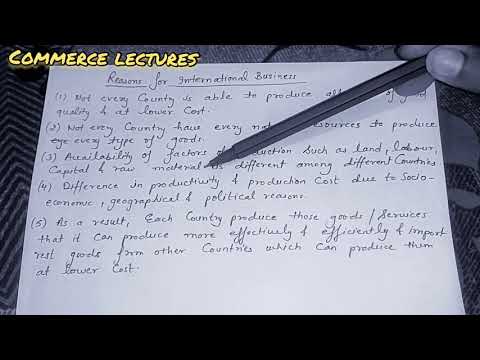 COMMERCE LECTURES
Reasons for International Business
(1) Not every Country is able to produce all of good
quality & at lower Cost.
(2) Not every Country have every resources to produce
eye every type of goods.
(3) Availability of factors of production such as land, labour,
Capital & raw material is different among different Countries
(4) Difference in productivity & production Cost due to Socio-
economic, geographical & political reasons.
(5) As a result, Each Country produce those goods/Services
that it can produce more effectively & efficiently & import
rest goods from other Countries which Can produce them
at lower Cost.